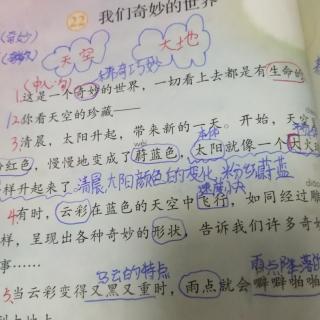 22 我们奇妙的世界
(奇妙)
天空
大地
稀奇巧妙
(中心句)
1.这是一个奇妙的世界，一切看上去都是有生命的
1.2你看天空的珍藏——
3清晨，太阳升起，带来新的一天。开始，天空
粉红色，慢慢地变成了蔚蓝色，太阳就像一个大火
样升起来了。清晨太阳颜色的变化，粉红蔚蓝
本体
速度小大
4.有时，云彩在蓝色的天空中飞行，如同经过雕
样，呈现出各种奇妙的形状，告诉我们许多奇
事……
乌云的特点
雨点降落
5.当云彩变得又黑又重时，雨点就会噼噼啪啪